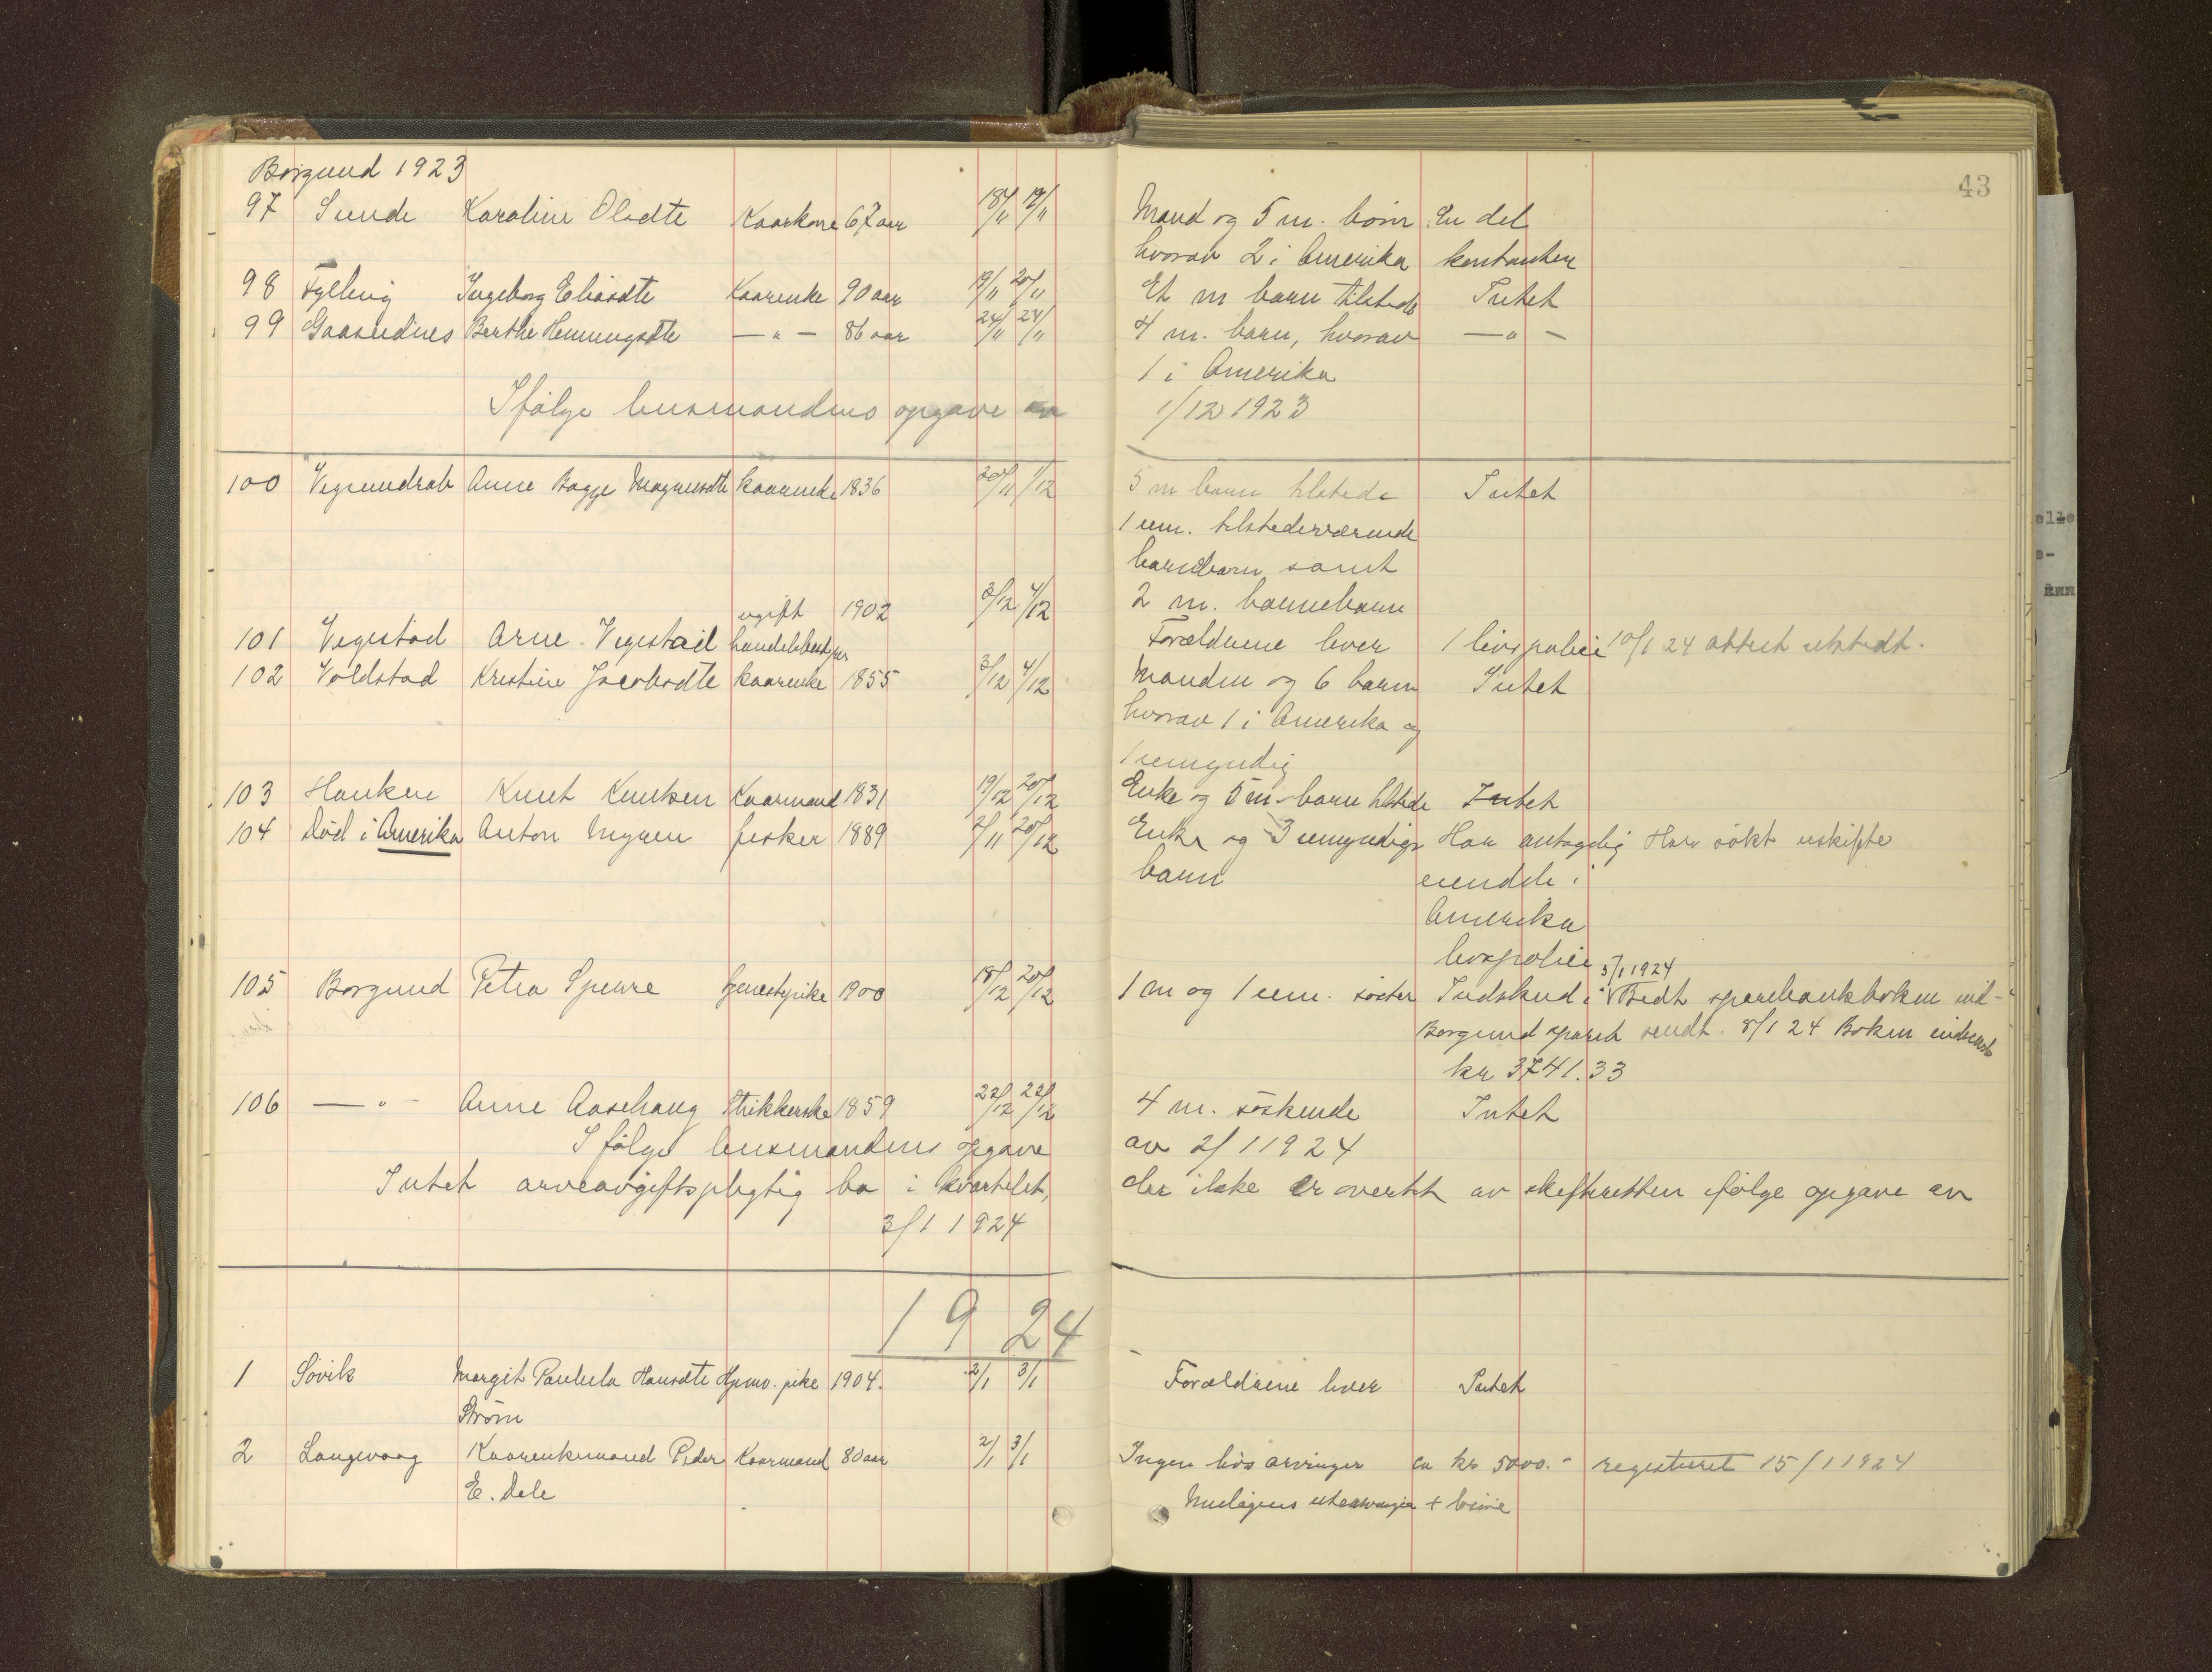 Borgund 1923
43
97 Sunde Karoline Olsdtr Kaarkone 67 aar 18/11 19/11 Mand og 5 m. børn En del
hvorav 2 i Amerika kontanter
98 Fylling Ingeborg Eliasdtr Kaarenke 90 aar 19/11 20/11 Et m barn tilstede Intet
99 Gaasednes Berthe Henningsdtr — " — 86 aar 24/11 24/11 4 m. barn, hvorav — " —
1 i Amerika
Ifølge lensmandens opgave av 1/12 1923
100 Vegsundrab Anne Bagge Magnusdtr kaarenke 1836 20/11 1/12 5 m barn tilstede Intet
1 um. tilstedeværende
barnebarn samt
2 m. barnebarn
ugift 1902 3/12 4/12
101 Vegestad Arne Vegestad handelsbestyrer Forældrene lever 1 livspolice 10/1 24 attest utstedt.
102 Voldstad Kristine Jacobsdtr kaarenke 1855 3/12 4/12 Manden og 6 barn Intet
hvorav 1 i Amerika og
1 umyndig
103 Hanken Knut Knutsen Kaarmand 1831 19/12 20/12 Enke og 5 m barn tilstede Intet
104 Død i Amerika Anton Myren fisker 1889 2/11 20/12 Enke og 3 umyndige Har antagelig Har søkt uskifte
barn eiendele i
Amerika
livspolice 5/1 1924
105 Borgund Petra Spenre tjenestepike 1900 18/12 20/12 1 m og 1 um. søster Indskud i Bedt sparebankboken ind-
Borgund spareb sendt. 8/1 24 Boken indsendt
kr 3741.33
106 — " — Anne Aasehaug Strikkerske 1859 22/12 22/12 4 m. søskende Intet
Ifølge lensmandens opgave av 2/1 1924
Intet arveavgiftspligtig bo i kvartalet, der ikke er overtat av skifteretten ifølge opgave av
3/1 1924
1924
1 Søvik Margit Paulula Hansdtr Hjemv. pike 1904. 2/1 3/1 Forældrene lever Intet
Strøm
2 Langevaag Kaarenkemand Peder Kaarmand 80 aar 2/1 3/1 Ingen livsarvinger ca kr 5000.- registreret 15/1 1924
E. Dale Muligens utearvinger +